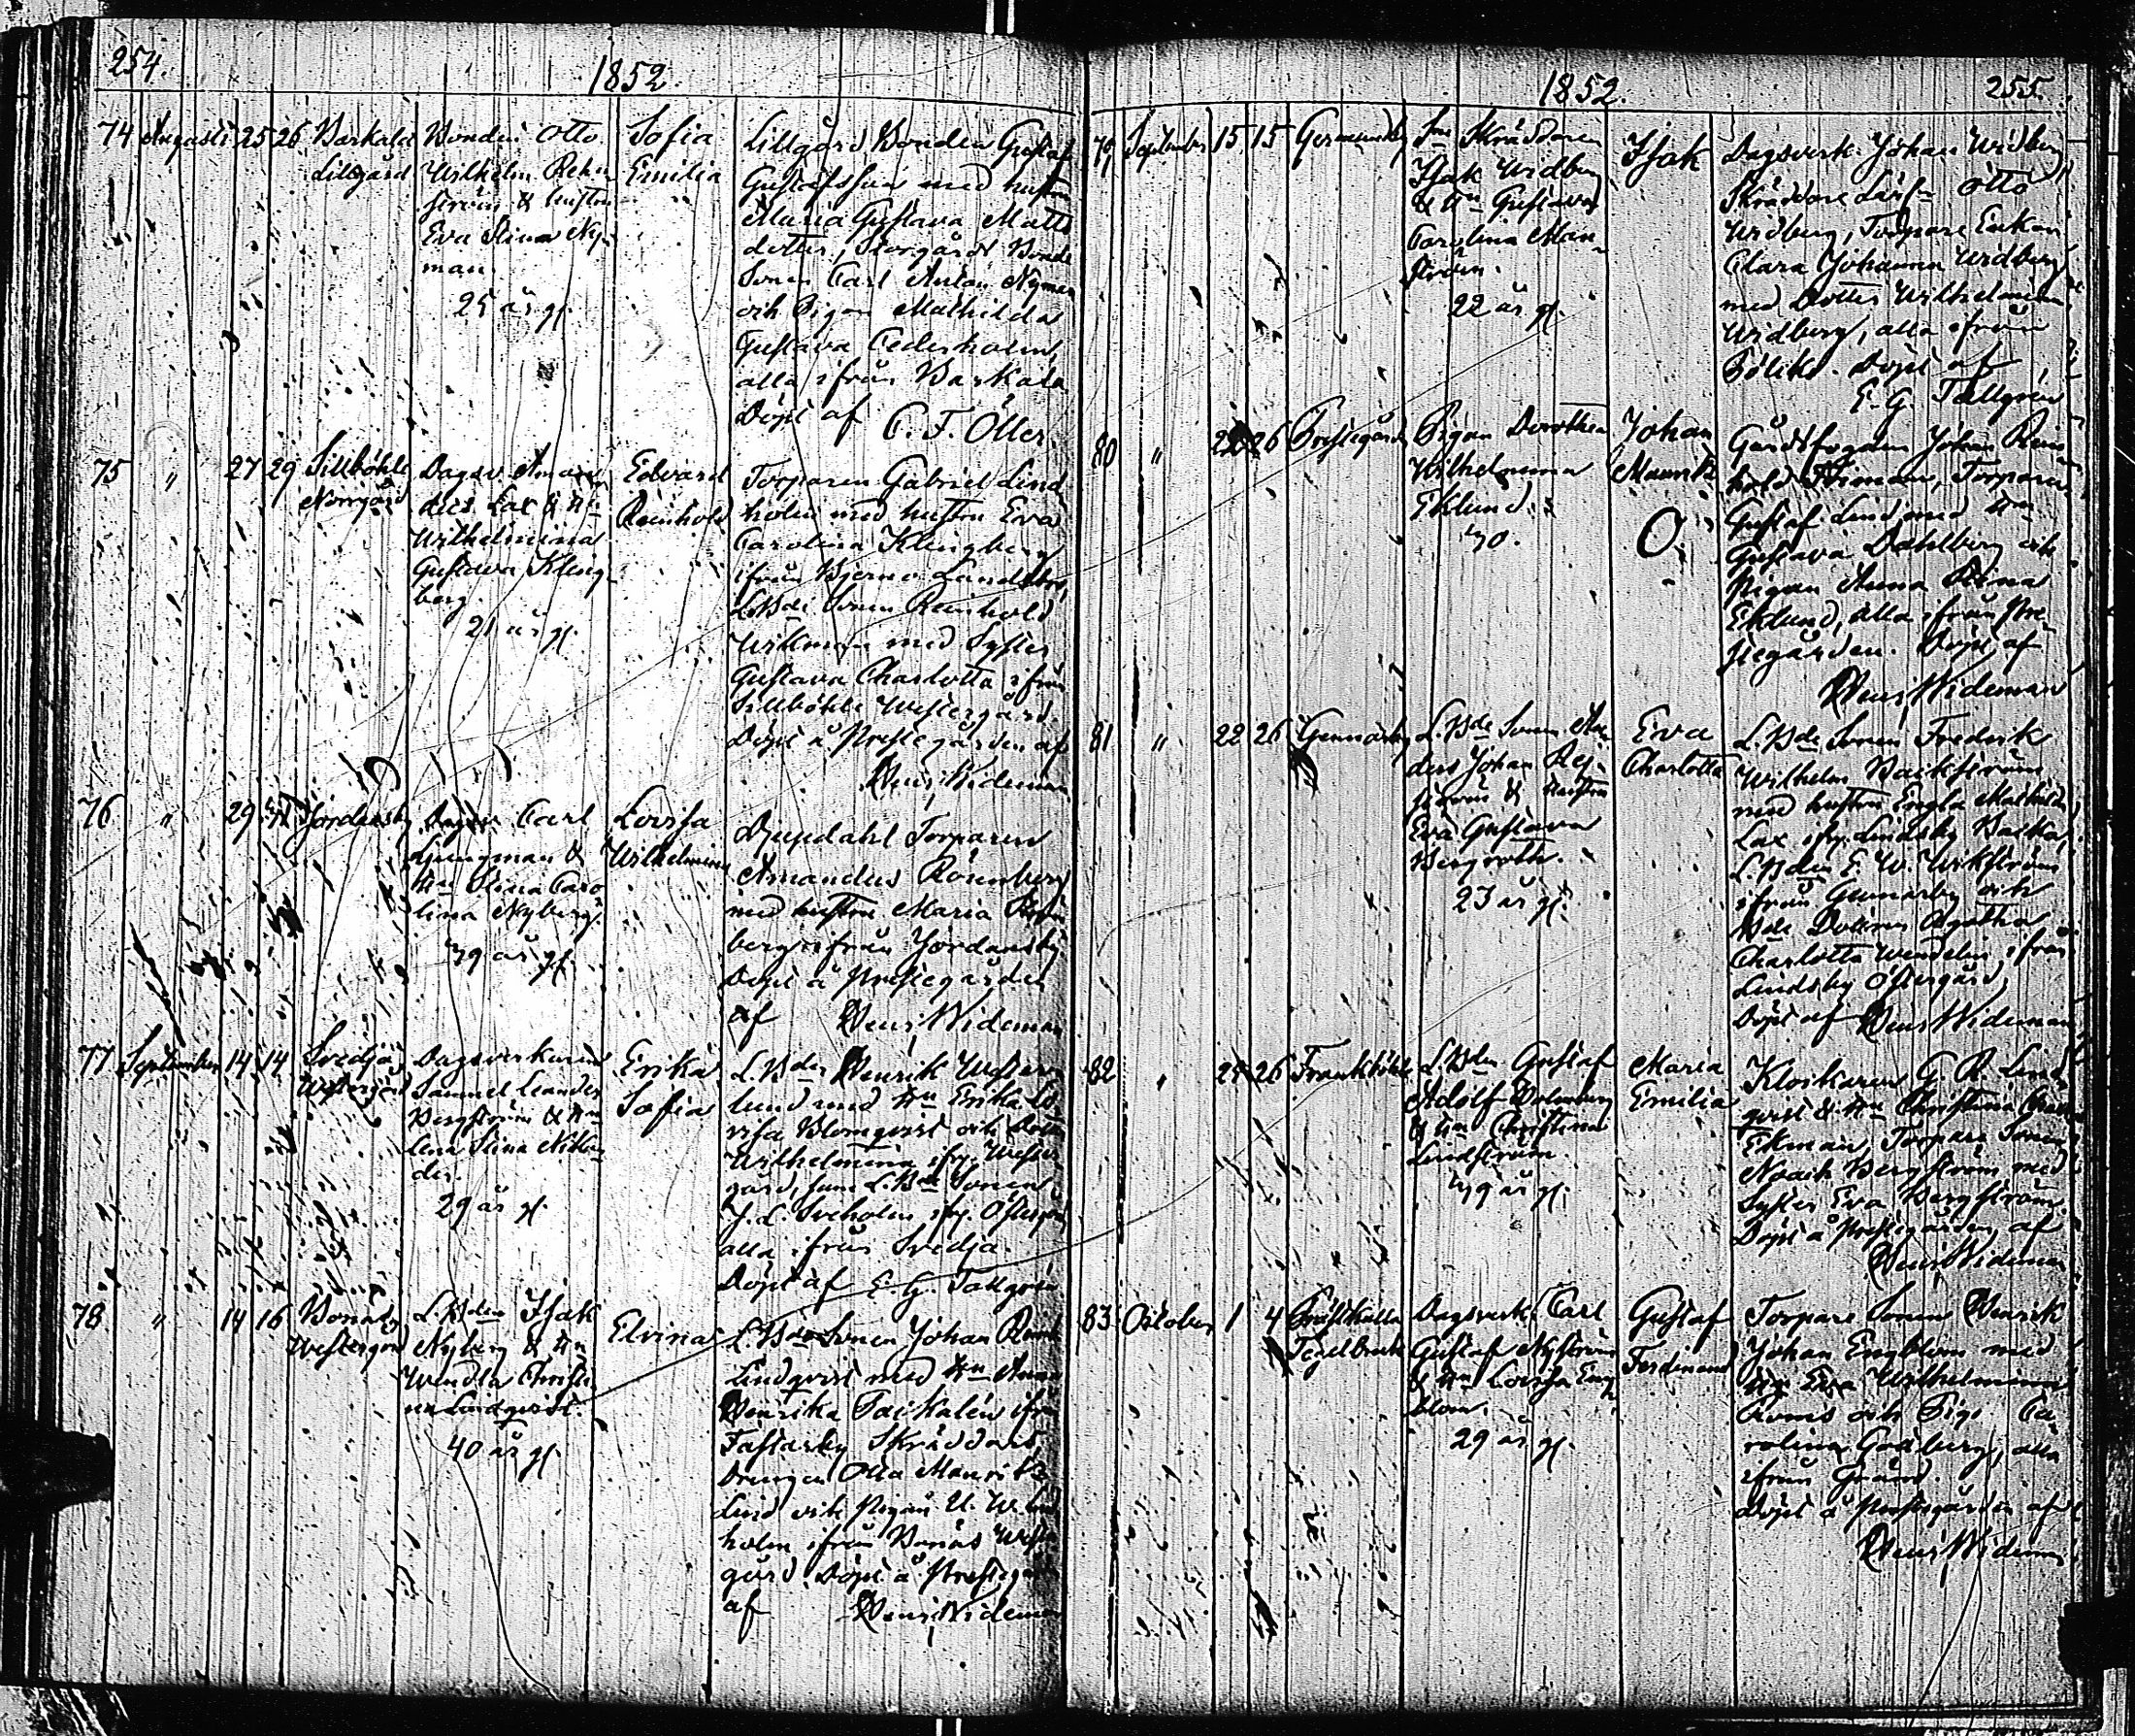 254.
1852.
74 Augusti 25 26 Barkala Lillgård
Bonden Otto
Wilhelm
& hustru
Eva Stina Ny-
man.
25 år gl.
Sofia
Emilia
Lillgård Bonden Gustaf
Gustafsson med hustru
Maria Gustava Matts
dotter, Storgårds Bonde
Sonen Carl Anton Nyman
och Pigan Mathilda
Gustava Cederholm,
alla ifrån Barkala
Döpt af C. F. Öller.
75 " 27 29 Sillböhle Norrgård
Dagsv. Aman-
dus Lax & Hn
Wilhelmina
Gustava Kling-
berg.
21 år gl.
Edvard
Reinhold
Torparen Gabriel Lind
holm med hustru Eva
Carolina Klingberg
ifrån Bjerno Landsbo,
LBde Sonen Reinhold
Wikman med Syster
Gustava Charlotta ifrån
Sillböhle Westergård.
Döpt å Prestegården af
Henr. Wideman
76 " 29 Jordansby
Carl
Ljungman &
Hn Stina Caro
lina Nyberg.
39 år gl.
Lovisa
Wilhelmina
Djupdahl Torparen
Amandus Rosenberg
med hustru Maria
berg ifrån Jordansby
Döpt å Prestegården
af Henr. Wideman
77 September 14 14 Svedja Westergård
Dagsverkaren
Samuel Leander
Bergström & Hn
Lena Stina Nikan-
der.
29 år gl.
Erika
Sofia
L.Bden Henrik Wester-
lund med Hn Erika Lo-
visa Blomqvist och
Wilhelmina ifrån Wester
gård, samt L.Bde Sonen
J. L. Sveholm Östergård
alla ifrån Svedja.
Döpt af E. G. Tallgren
78 " 14 16 Bonäs Westergård
L.Bden Isak
Nyberg & Hn
Wendla Christi
na Lindqvist.
40 år gl.
Elvina
L.Bde Sonen Johan
Lindqvist med Hn Anna
Henrika Taikalén ifrån
Fastarby Skräddare
Drengen Otto Mauritz
Lind och Pigan U. W. Lind
holm ifrån Bonäs Wester
gård. Döpt å Prestegården
af Henr. Wideman
1852.
255.
79 September 15 15 Germundsby
Sn Skräddaren
Isak Widberg
& Hn Gustava
Carolina Man-
ström.
22 år gl.
Isak
Dagsverk. Johan Widberg,
Skräddare Lärl. Otto
Widberg, Torpare Enkan
Clara Johanna Widberg
med Dotter Wilhelmina
Widberg, alla ifrån
Böliks. Döpt af
E. G. Tallgren
80 " 26 Prestegården
Pigan Dorothea
Wilhelmina
Eklund.
30.
Johan
Mauritz
O.
Gårdsfogden Johan Rein
hold Forman, Torparen
Gustaf Lind med Hn
Gustava Dahlberg och
Pigan Anna Stina
Eklund, alla ifrån Pre-
stegården. Döpt af
Henr. Wideman
81 " 22 26 Gennarby
L.Bde Sonen An-
ders Johan Rej-
ström & hustru
Eva Gustava
Bergroth.
23 år gl.
Eva
Charlotta
L.Bde Sonen Fredrik
Wilhelm Backström
med hustru Engla Mathilda
Lax ifr. Lindsby Backa,
L.Bden E. W. Wikström
ifrån Gennarby och
Bde Dottren Agatha
Charlotta Wendelin ifrån
Lindsby Östergård
Döpt af Henr. Wideman
82 " 24 26 Frankböhle
L.Bden Gustaf
Adolf Holmberg
& Hn Christina
Lindström.
39 år gl.
Maria
Emilia
Klockaren G. R. Lind-
qvist & Hn Christina
Ekman, Torpare Sonen
Noach Bergström med
Syster Eva Bergström.
Döpt å Prestegården af
Henr. Wideman
83 October 1 4 Prästkulla Tegelbruk
Dagsverk. Carl
Gustaf Nyström
& Hn Lovisa Eng-
blom.
29 år gl.
Gustaf
Ferdinand
Torpare Sonen Henrik
Johan Engblom med
Hn Eva Wilhelmina
Roms och Pig. Ca-
rolina Godberg, alla
ifrån Gränd.
Döpt å Prestegården af
Henr. Wideman